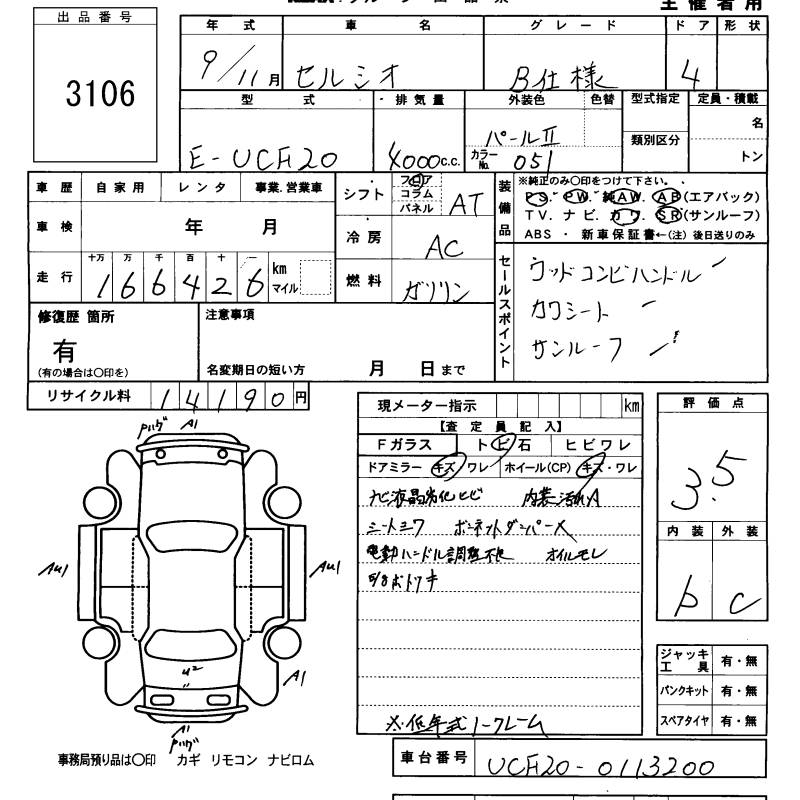 主催者用
出品番号
3106
年式 車名 グレード ドア 形状
9/11月 セルシオ B仕様 4
型式 排気量 外装色 色替 型式指定 定員・積載
E-UCF20 4000c.c. パールⅡ 類別区分 名
カラーNo. 051 トン
車歴 自家用 レンタ 事業.営業車
車検 年 月
走行 十万 万 千 百 十 一
166426 km マイル
シフト フロア コラム パネル AT
冷房 AC
燃料 ガソリン
装備品 ※純正のみ〇印をつけて下さい。
PS. PW. 純AW. AB(エアバック)
TV. ナビ. カワ. SR(サンルーフ)
ABS ・ 新車保証書←(注) 後日送りのみ
セールスポイント
ウッドコンビハンドル
カワシート
サンルーフ
修復歴 箇所
有
(有の場合は〇印を)
注意事項
名変期日の短い方 月 日まで
リサイクル料 14190円
現メーター指示 km
【査定員記入】
Fガラス トビ石 ヒビワレ
ドアミラー キズ ワレ ホイール(CP) キズ・ワレ
ナビ液晶劣化ヒビ 内装汚れA
シートシワ ボンネットダンパー×
電動ハンドル調整不良 オイルモレ
※低年式
評価点
3.5
内装 外装
b C
ジャッキ工具 有・無
パンクキット 有・無
スペアタイヤ 有・無
A1
AU1 AU1
U2
A1
A1
事務局預り品は〇印 カギ リモコン ナビロム
車台番号 UCF20-0113200